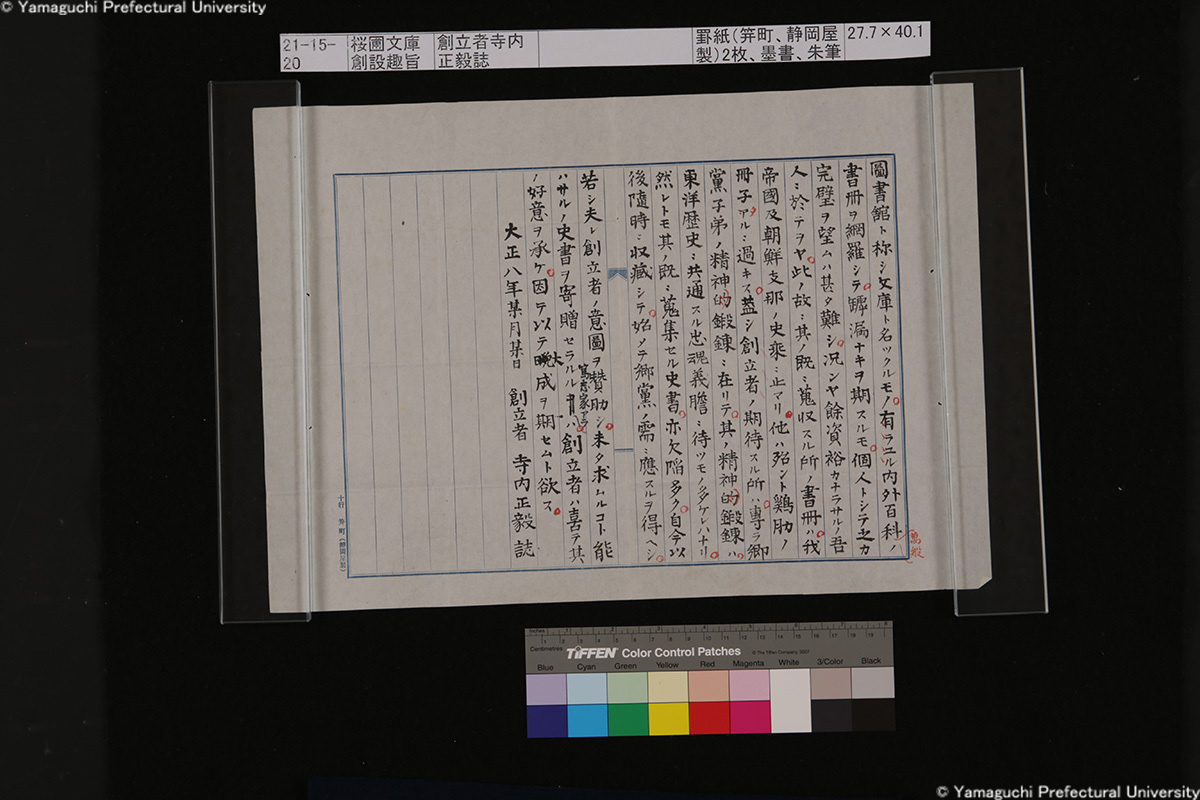 © Yamaguchi Prefectural University
21-15-20
桜圃文庫創設趣旨
創立者寺内正毅誌
罫紙(笄町、静岡屋製)2枚、墨書、朱筆
27.7×40.1
圖書館ト称シ文庫ト名ツクルモノ有ラユル内外百科ノ
書册ヲ網羅シテ罅漏ナキヲ期スルモ個人トシテ之カ
完璧ヲ望ムハ甚タ難シ况ンヤ餘資裕カナラサルノ吾
人ニ於テヲヤ此ノ故ニ其ノ既ニ蒐収スル所ノ書冊ハ我
帝國及朝鮮支那ノ史乘ニ止マリ他ハ殆ント鷄肋ノ
冊子タルニ過キス蓋シ創立者ノ期待スル所ハ專ラ郷
黨子弟ノ精神的鍛錬ニ在リテ其ノ精神的鍛錬ハ
東洋歴史ニ共通スル忠魂義膽ニ待ツモノ多ケレハナリ
然レトモ其ノ既ニ蒐集セル史書亦欠陥多ク自今以
後隨時ニ収藏シテ始メテ郷黨ノ需ニ應スルヲ得ヘシ
若シ夫レ創立者ノ意圖ヲ賛助シ未タ求ムルコト能
ハサルノ史書ヲ寄贈セラルル篤志家アラハ創立者ハ喜テ其
ノ好意ヲ承ケ因テ以テ大成ヲ期セムト欲ス
大正八年某月某日 創立者 寺内正毅誌
十行 笄町(静岡屋製)
Inches
Centimetres
TIFFEN Color Control Patches
© The Tiffen Company, 2007
Blue Cyan Green Yellow Red Magenta White 3/Color Black
© Yamaguchi Prefectural University